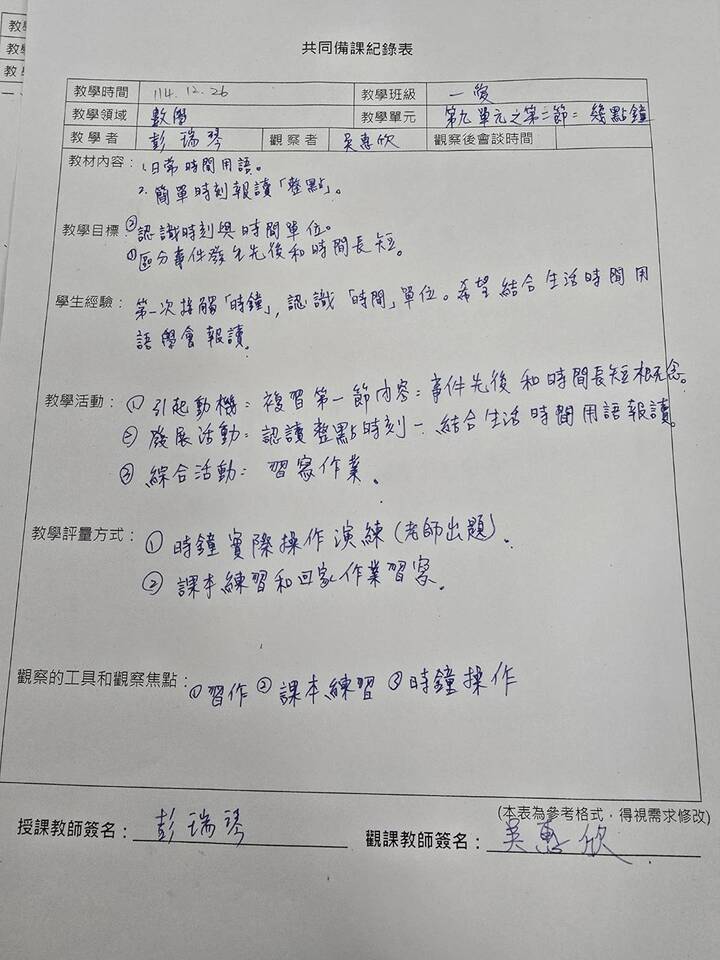 共同備課紀錄表
教學時間 114.12.26 教學班級 一愛
教學領域 數學 教學單元 第九單元之第二節：幾點鐘
教學者 彭瑞琴 觀察者 吳惠欣 觀察後會談時間
教材內容：1.日常時間用語。
2.簡單時刻報讀「整點」。
教學目標：②認識時刻與時間單位。
①區分事件發生先後和時間長短。
學生經驗：第一次接觸「時鐘」，認識「時間」單位。希望結合生活時間用
語學會報讀。
教學活動：① 引起動機：複習第一節內容：事件先後和時間長短概念。
② 發展活動：認讀整點時刻－結合生活時間用語報讀。
③ 綜合活動：習寫作業。
教學評量方式：① 時鐘實際操作演練(老師出題)。
② 課本練習和回家作業習寫。
觀察的工具和觀察焦點：①習作 ②課本練習 ③時鐘操作
(本表為參考格式，得視需求修改)
授課教師簽名：彭瑞琴 觀課教師簽名：吳惠欣